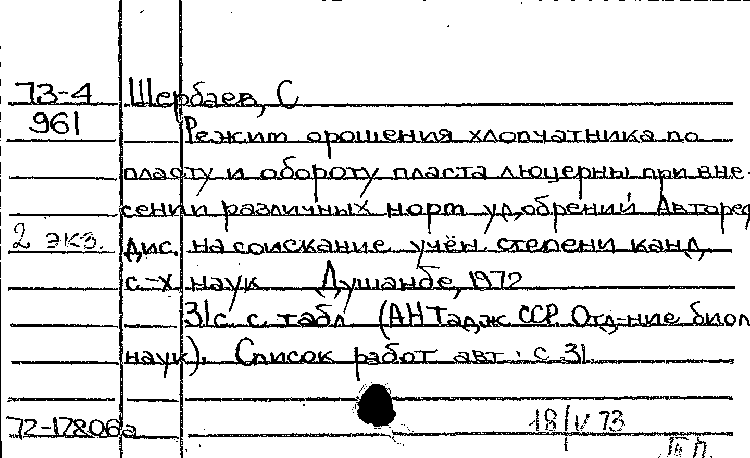 73-4 Щербаев, С
961 Режим орошения хлопчатника по
пласту и обороту пласта люцерны при вне-
сении различных норм удобрений Автореф
2 экз. дис. на соискание учён. степени канд.
с.-х наук Душанбе, 1972
31с. с табл (АН Тадж. ССР. Отд-ние биол
наук). Список работ авт.: с 31
72-17806а
18/V 73